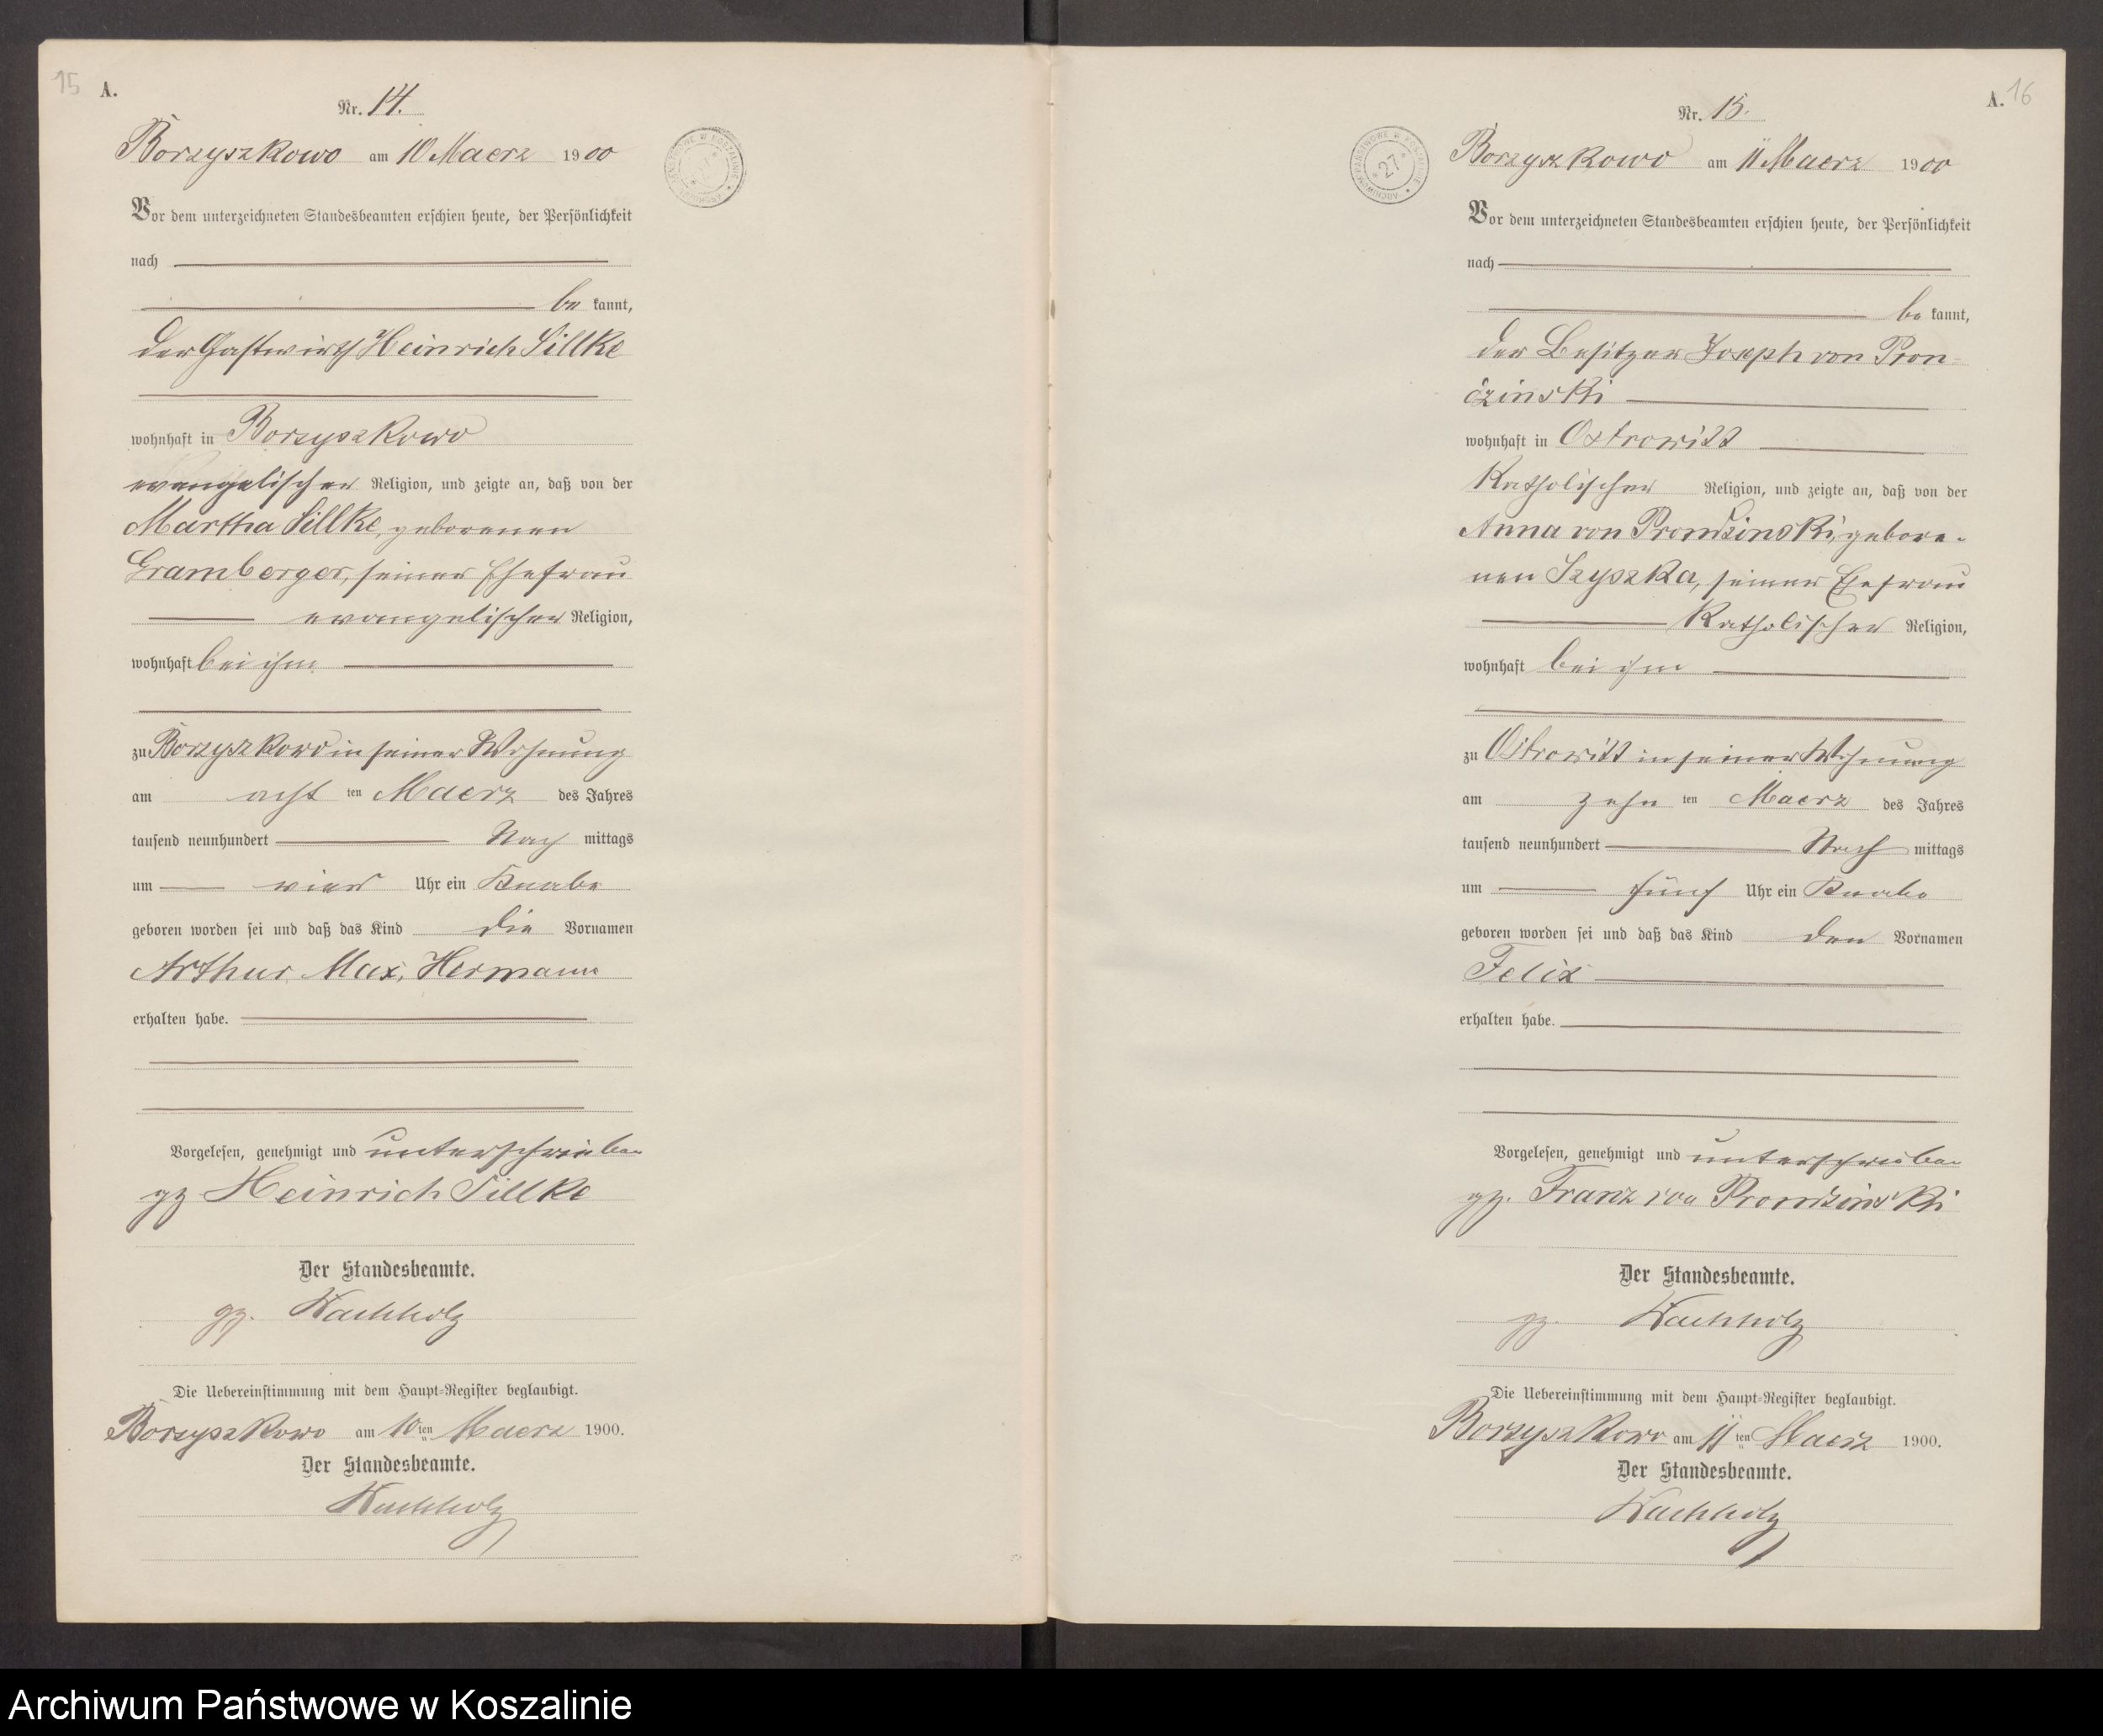 15 A.
Nr. 14.
Borzyszkowo am 10 Maerz 1900
Vor dem unterzeichneten Standesbeamten erschien heute, der Persönlichkeit
nach
be kannt,
der Gastwirth Heinrich Sillke
wohnhaft in Borzyszkowo
evangelischer Religion, und zeigte an, daß von der
Martha Sillke, geborenen
Gramberger, seiner Ehefrau
evangelischer Religion,
wohnhaft bei ihm
zu Borzyszkowo in seiner Wohnung
am acht ten Maerz des Jahres
tausend neunhundert Nach mittags
um vier Uhr ein Knabe
geboren worden sei und daß das Kind die Vornamen
Arthur, Max, Hermann
erhalten habe.
Vorgelesen, genehmigt und unterschrieben
gz Heinrich Sillke
Der Standesbeamte.
gz. Wachholz
Die Uebereinstimmung mit dem Haupt-Register beglaubigt.
Borzyszkowo am 10 ten Maerz 1900.
Der Standesbeamte.
Wachholz
A. 16
Nr. 15.
27
Borzyszkowo am 11 Maerz 1900
Vor dem unterzeichneten Standesbeamten erschien heute, der Persönlichkeit
nach
be kannt,
der Besitzer Joseph von Pron-
dzinski
wohnhaft in Ostrowitt
Katholischer Religion, und zeigte an, daß von der
Anna von Prondzinski, gebore-
nen Szyszka, seiner Ehefrau
Katholischer Religion,
wohnhaft bei ihm
zu Ostrowitt in seiner Wohnung
am zehn ten Maerz des Jahres
tausend neunhundert Nach mittags
um fünf Uhr ein Knabe
geboren worden sei und daß das Kind den Vornamen
Felix
erhalten habe.
Vorgelesen, genehmigt und unterschrieben
gz. Franz von Prondzinski
Der Standesbeamte.
gz. Wachholz
Die Uebereinstimmung mit dem Haupt-Register beglaubigt.
Borzyszkowo am 11 ten Maerz 1900.
Der Standesbeamte.
Wachholz
Archiwum Państwowe w Koszalinie